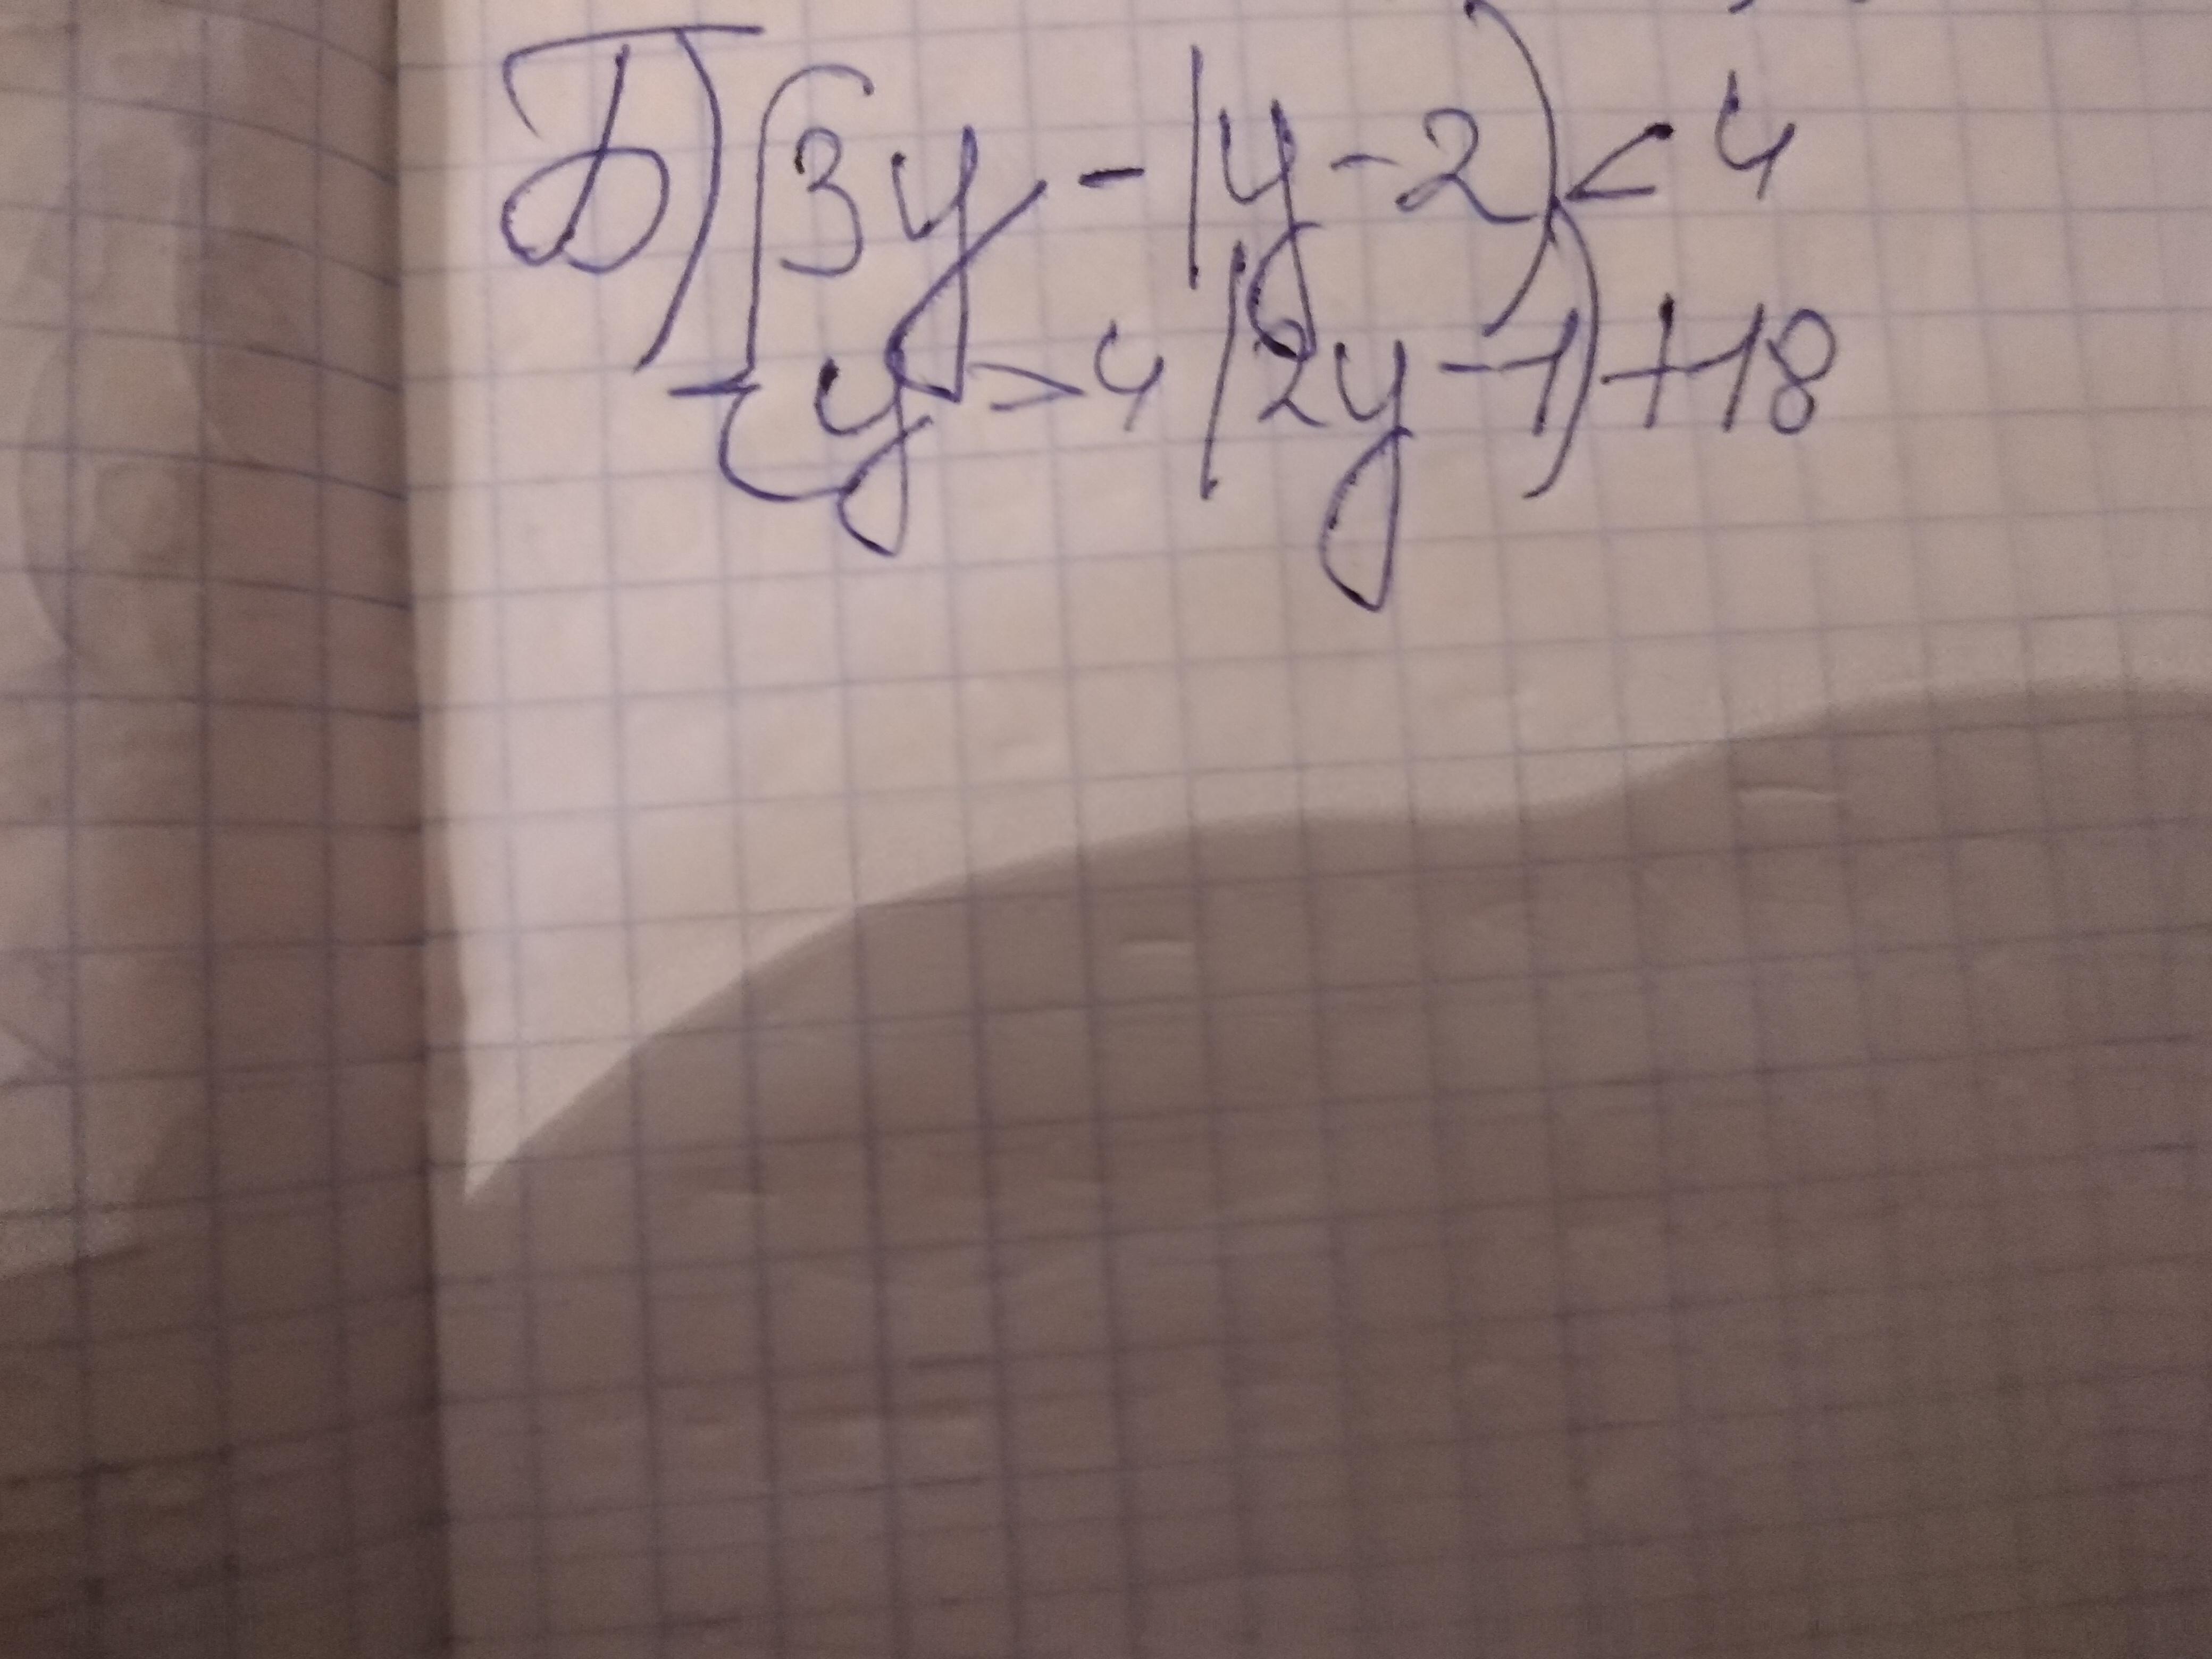 Б) { 3y - (y - 2) < 4
y > 4(2y - 1) + 18